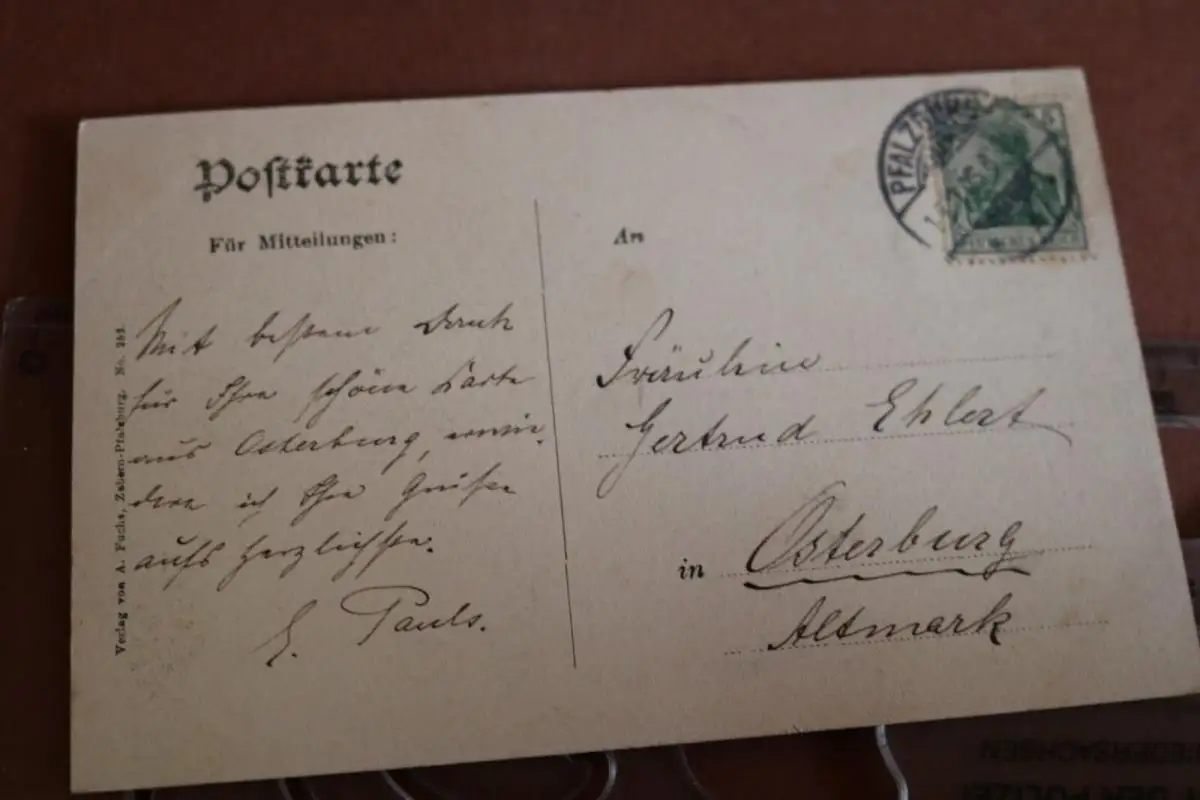 Postkarte
Für Mitteilungen:
Mit bestem Dank
für Ihre schöne Karte
aus Osterburg, erwie-
dere ich Ihre Grüße
aufs herzlichste.
E. Pauls.
Verlag von A. Fuchs, Zabern-Pfalzburg. No. 253.
PFALZBURG
An
Fräulein
Gertrud Ehlert
in Osterburg
Altmark